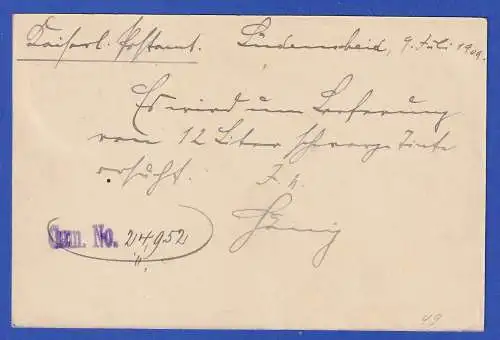 Kaiserl. Postamt. Lüdenscheid, 9. Juli 1909.
Es wird um Lieferung
von 12 Liter schwarze Tinte
ersucht. I. V.
Com. No. 24,952
49